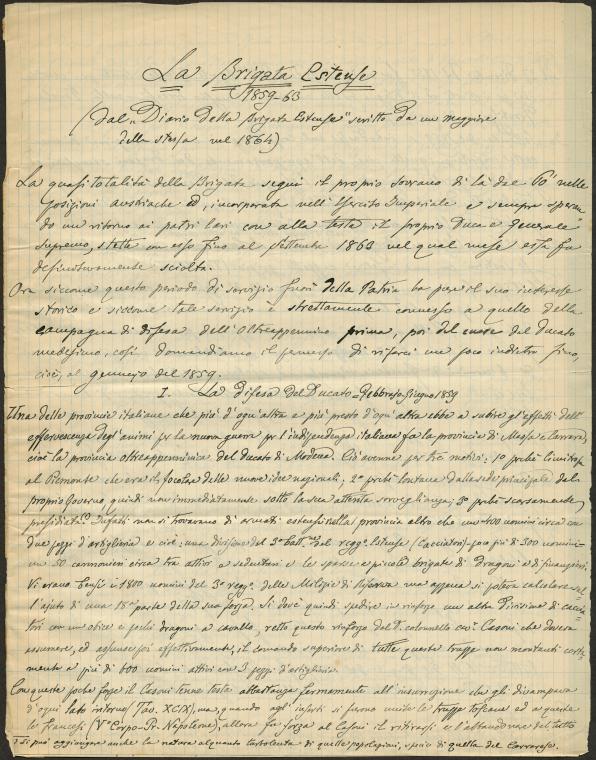 La Brigata Estense
1859-63
(dal „Diario della Brigata Estense" scritto da un maggiore
della stessa nel 1864)
La quasi totalità della Brigata seguì il proprio sovrano di là del Po nelle
posizioni austriache ed, incorporata nell'Esercito Imperiale e sempre speran-
do un ritorno ai patri lari con alla testa il proprio Duca e Generale
supremo, stette con esso fino al settembre 1863 nel qual mese essa fu
definitivamente sciolta.
Ora siccome questo periodo di servizio fuori della Patria ha pure il suo interesse
storico e siccome tale servizio è strettamente connesso a quello della
campagna di difesa dell'Oltreappennino prima, poi del cuore del Ducato
medesimo, così domandiamo il permesso di rifarci un poco indietro fino,
cioè, al gennajo del 1859.
I. La difesa del Ducato - Febbrajo-Giugno 1859
Una delle provincie italiane che più d'ogni altra e più presto d'ogni altra ebbe a subire gl'effetti dell'
effervescenza degl'animi per la nuova guerra per l'indipendenza italiana fu la provincia di Massa e Carrara,
cioè la provincia oltreappenninica del Ducato di Modena. Ciò avenne per tre motivi: 1° perchè limitrofa
al Piemonte che era il focolare delle nuove idee nazionali; 2° perchè lontana dalla sede principale del
proprio Governo quindi non immediatamente sotto la sua attenta sorveglianza; 3° perchè scarsamente
presidiata. Infatti non si trovavano di armati estensi nella provincia altro che un 400 uomini circa con
due pezzi d'artiglieria e cioè: una divisione del 3° batt. del regg. Estense (Cacciatori) - poco più di 300 uomini -
un 50 cannonieri circa tra attivi e sedentari e le sparse e piccole brigate di Dragoni e di finanzieri.
Vi erano bensì i 1800 uomini del 3° regg. delle Milizie di Riserva ma appena si poteva calcolare sul-
l'ajuto di una 18ª parte della sua forza. Si dovè quindi spedire in rinforzo un altra Divisione di caccia-
tori con un obice e pochi dragoni a cavallo, retto questo rinforzo dal T. colonnello cav. Casoni che doveva
assumere, ed assunse poi effettivamente, il comando superiore di tutte queste truppe non montanti certa-
mente a più di 600 uomini attivi con 3 pezzi d'artiglieria.
Con queste poche forze il Casoni tenne testa abbastanza fermamente all'insurrezione che gli divampava
d'ogni lato intorno (Tav. XCIX), ma, quando agl'insorti si furono unite le truppe toscane ed a queste
le francesi (V° Corpo - Pr. Napoleone), allora fu forza al Casoni il ritirarsi e l'abbandonare del tutto
1 Si può aggiungere anche la natura alquanto turbolenta di quelle popolazioni, specie di quella del Carrarese.